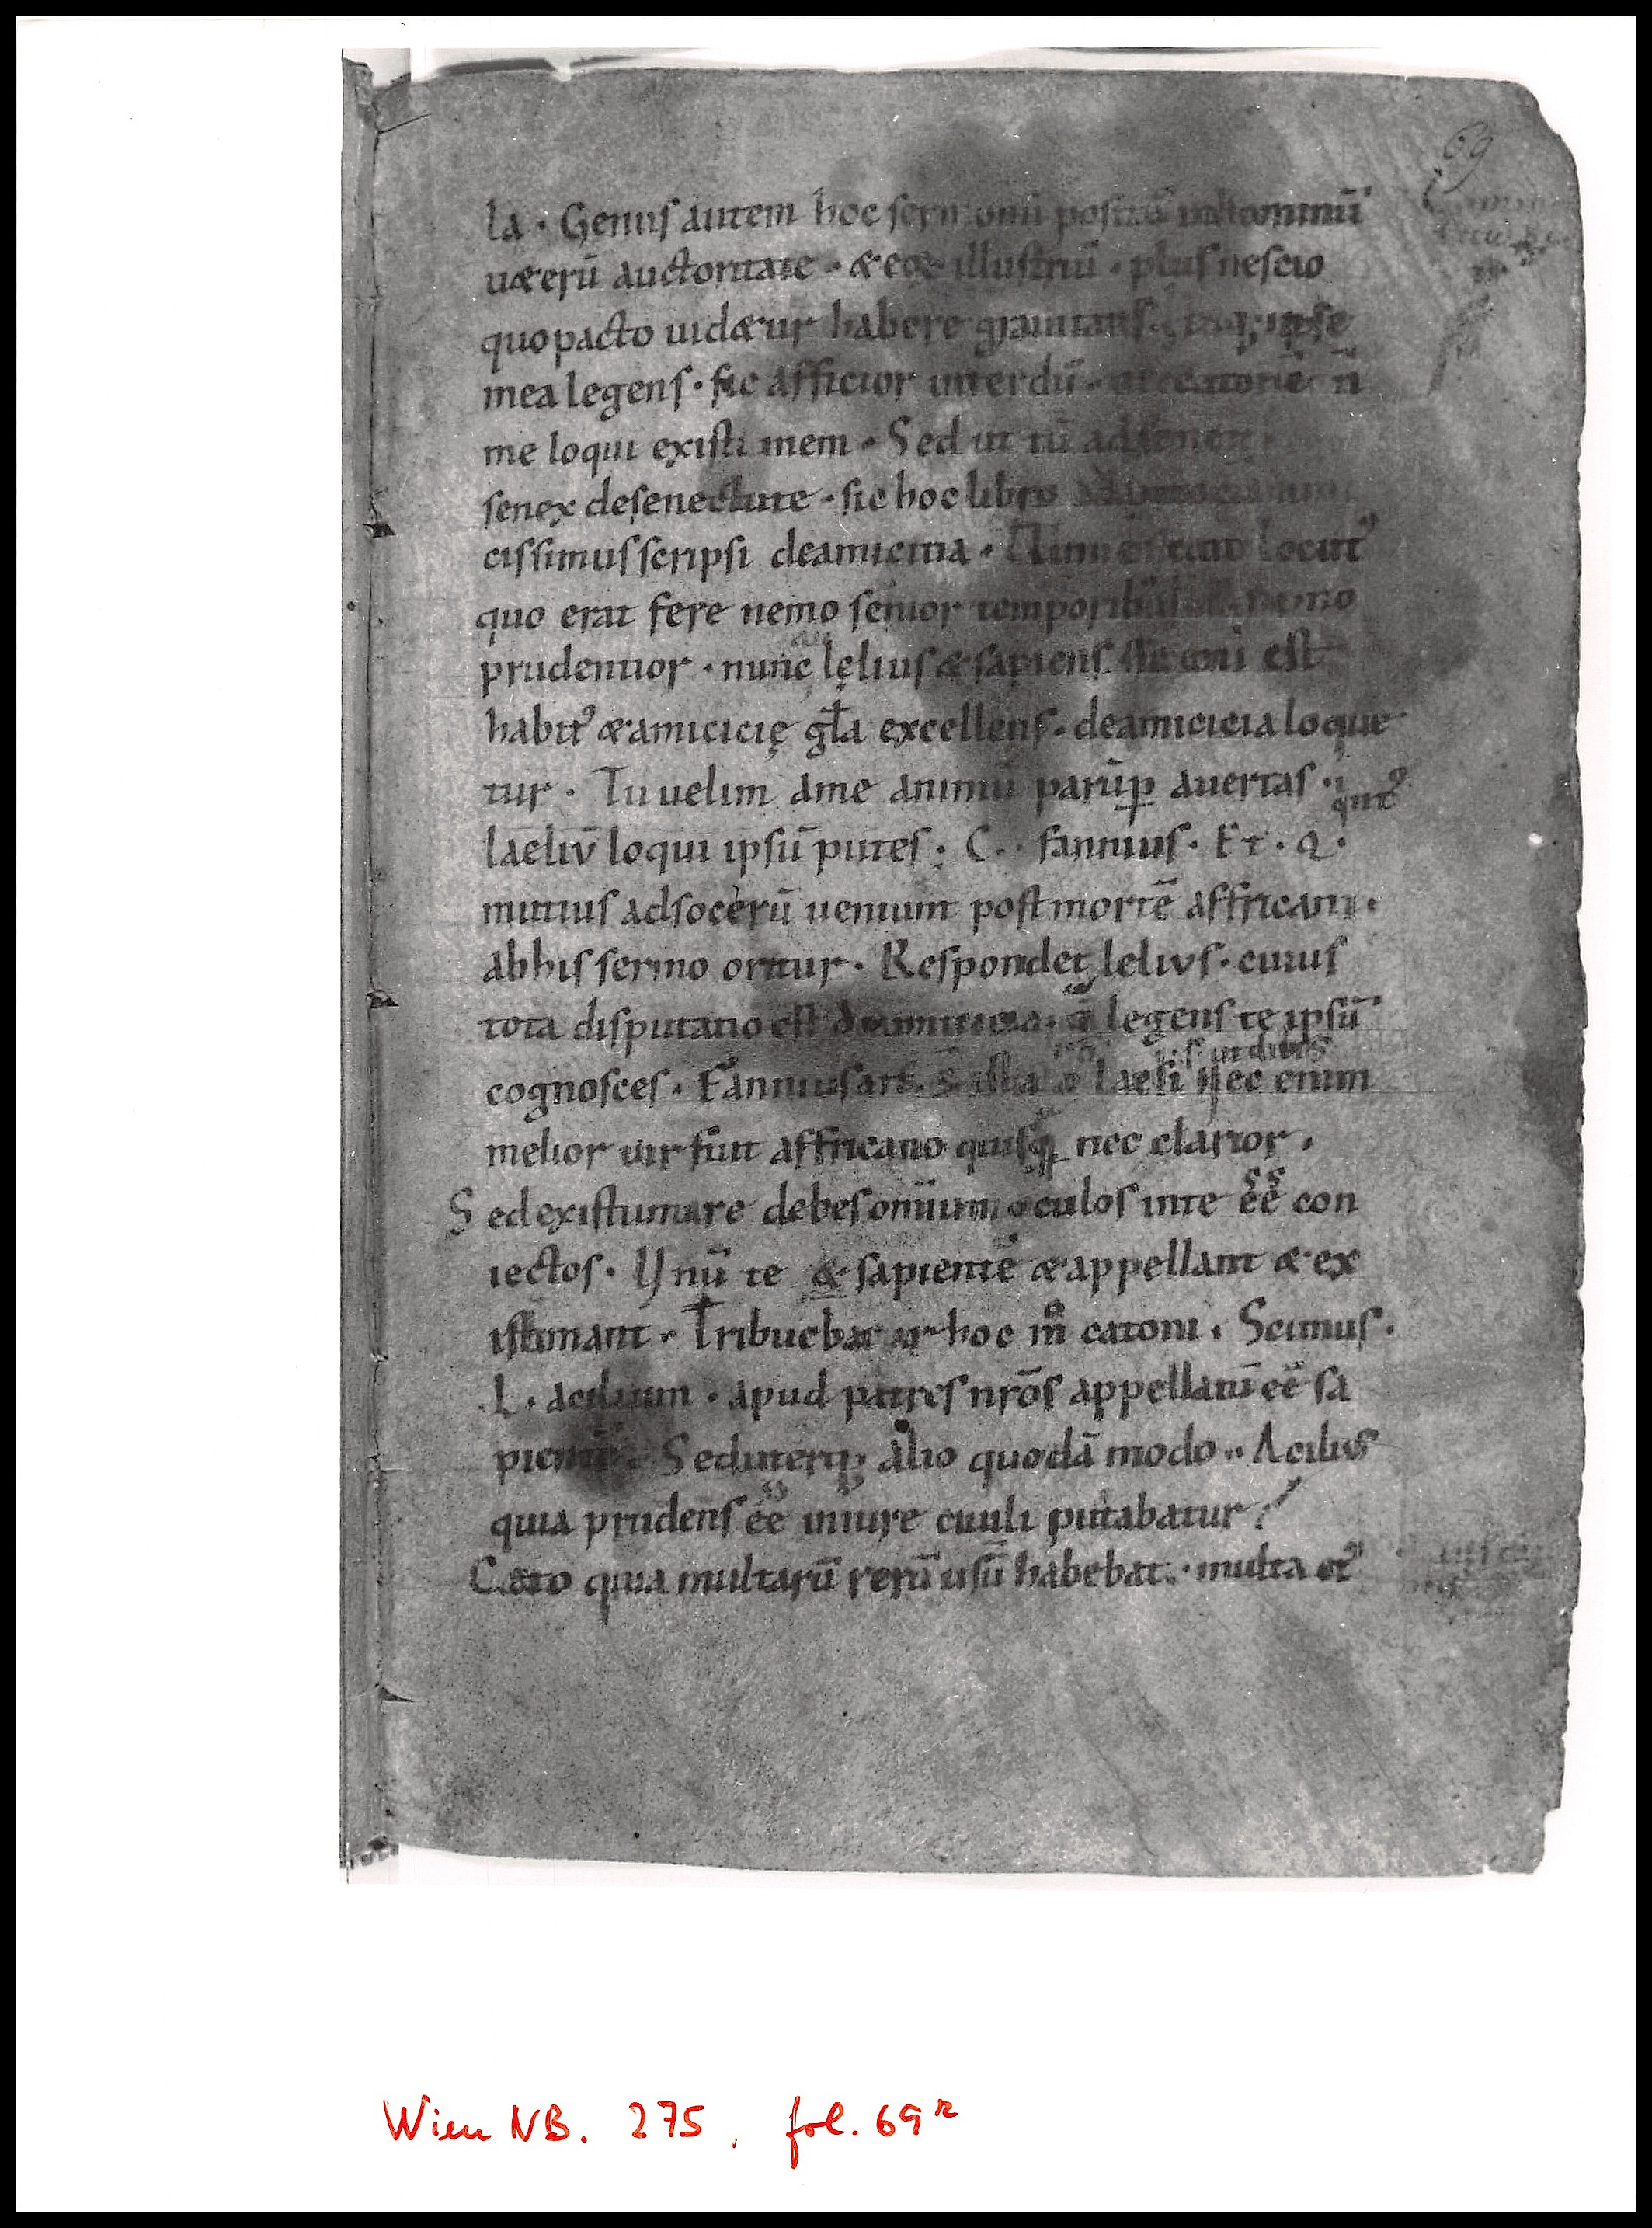 69
la · Genus autem hoc sermonū positū in hominū
uæerū auctoritate · & eoꝝ illustriū · plus nescio
quo pacto uidæur habere grauitatis. Itaq; ipse
mea legens · sic afficior interdū · ut catonē n̄
me loqui existi mem · Sed ut tū ad senem
senex de senectute · sic hoc libro ad amicum
cissimus scripsi de amicitia · Tum est cato locutꝰ
quo erat fere nemo senior temporibus nemo
prudentior · nunc lęlius & sapiens sic eni est
habitꝰ & amicicię gl̄a excellens · de amicicia loque
tur · Tu uelim a me animū parūp auertas ·
laeliū loqui ipsū putes · C. fannius · Et · Q ·
mutius ad socerū ueniunt post mortē affricani ·
ab his sermo oritur · Respondet lelius · cuius
tota disputatio est de amicitia · legens te ipsū
cognosces · Fannius ista laeli nec enim
ut dicis
melior uir fuit affricano quisq nec clarior ·
Sed existumare debes omnium oculos in te eē con
iectos · Vnū te & sapientē & appellant & ex
istimant · Tribuebatur hoc m̊ catoni · Scimus ·
L · acilium · apud patres nrōs appellatū eē sa
pientē · Sed uterq; alio quodā modo · Acilius
quia prudens eē in iure ciuili putabatur ·
Cato quia multarū rerū usū habebat · multa eiꝰ
Wien NB. 275, fol. 69r